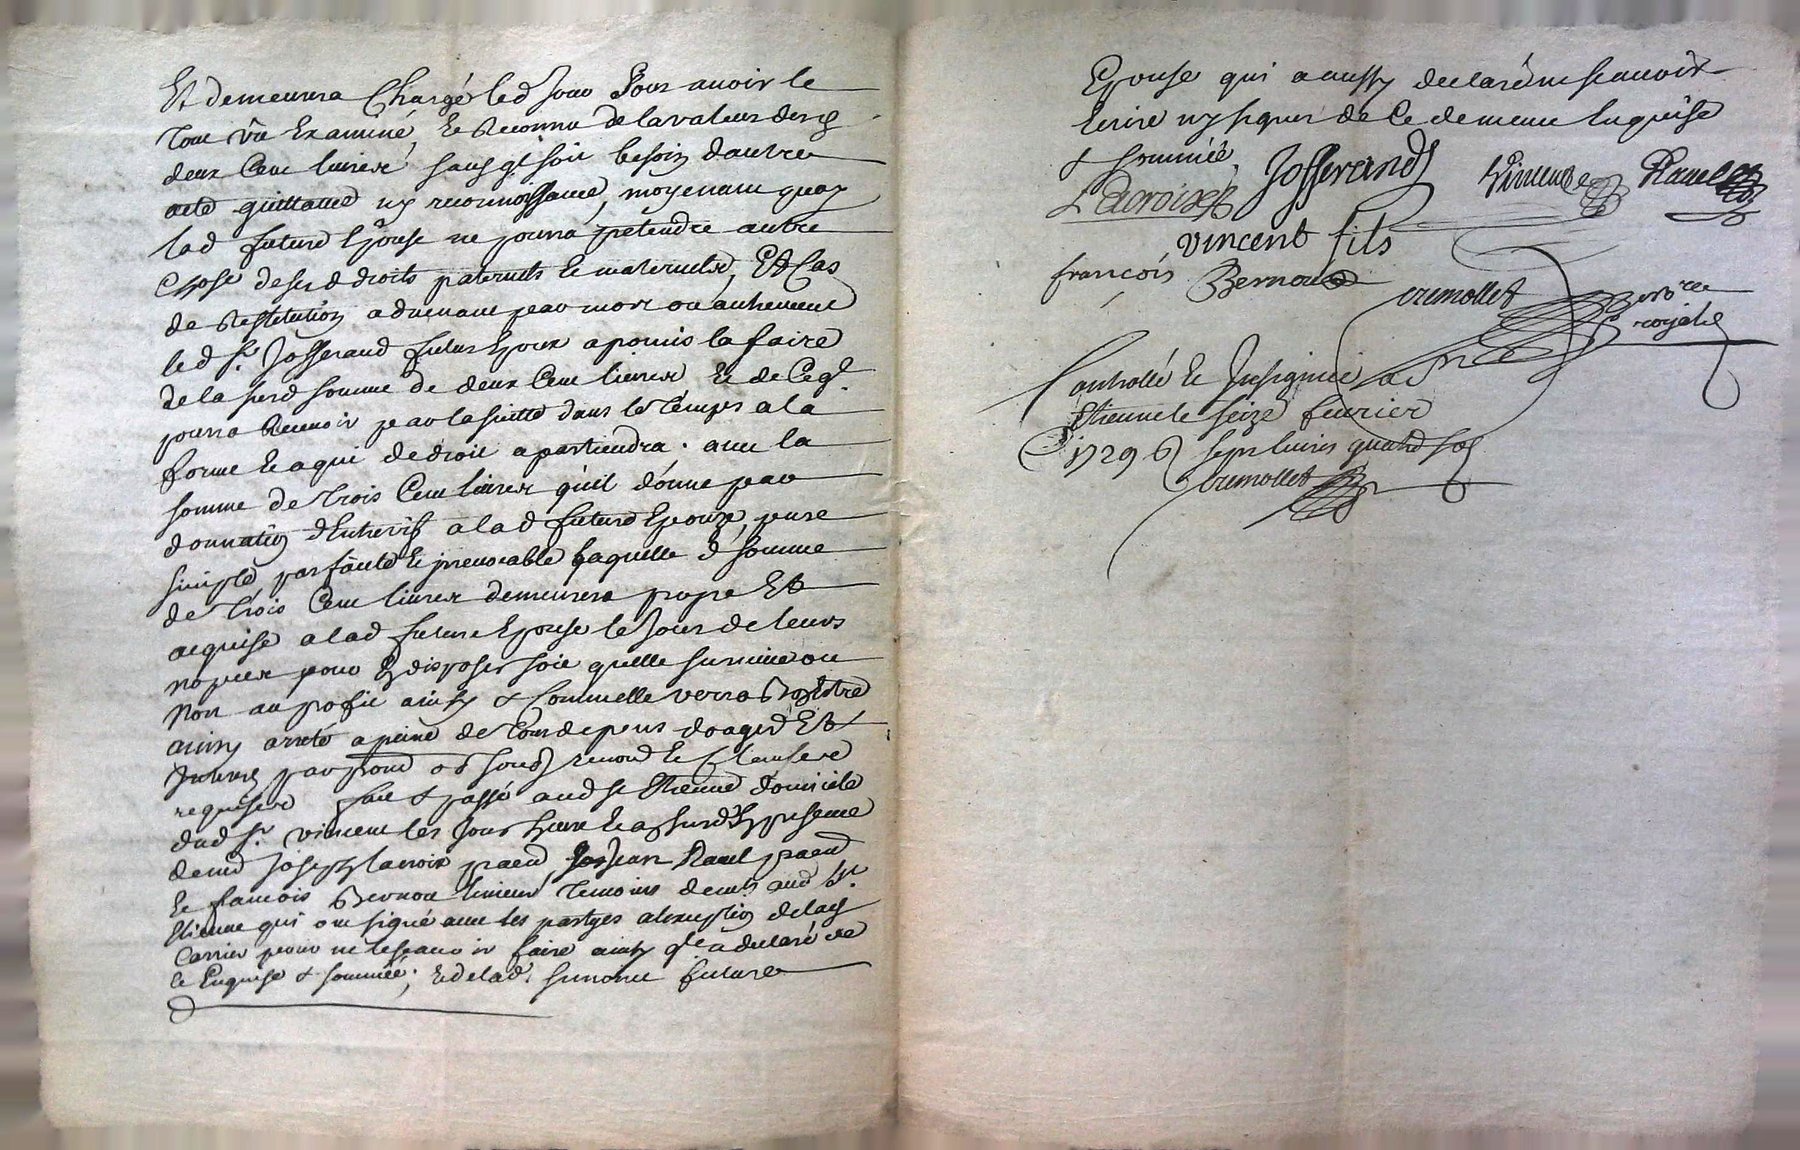 Et demeurera Chargé led Jour Pour avoir le
tout vû Examiné, Et Reconnu de la valeur desd
deux Cent livres, sans q̃l soit besoin dautre
acte quittance ny reconnoissance, moyenant quoy
lad future Epouse ne pourra prétendre autre
Chose desesd droits paternels Et maternels, Et Cas
de Restitution advenant par mort ou autrement
led Sr. Josserand futur Epoux a promis la faire
de la susd somme de deux Cent livres Et de Ce q̃l
pourra Recevoir par la suitte dans le temps a la
forme Et a qui de droit apartiendra. avec la
somme de trois Cent livres qu'il donne par
donnation d'Entrevifs a lad future Epouze, pure
simple parfaite Et irrevocable laquelle d somme
de trois Cent livres demeurera propre Et
acquise a lad future Epouse le Jour de leurs
nopces pour En disposer soit quelle survive ou
non au profit ainsy & Comme elle verra bon Estre
ainsy arreté a peine de tous depens domages Et
Interets par prom obs soub renon Et Clauses
requises fait & passé aud St Etienne domicile
dud Sr. vincent les Jour & an En presence
de Joseph lacroix Jean Ravel
Et francois Bernou temoins aud St.
Etienne qui ont signé avec les partyes a lexception de lad
Carrier pour ne le scavoir faire ainsy q̃lle a declaré de
ce Enquise & sommée, Et de lad. Simonne future
Epouse qui a aussy declaré ne scavoir
Ecrire ny signer de Ce dememe Enquise
& sommée,
Josserand Vincent Ravel
Lacroix
vincent fils
françois Bernou
cremollet no.re
royal
Controllé Et Insinué a St
Etienne le seize fevrier
1729 R sept livres quatre sols
Cremollet